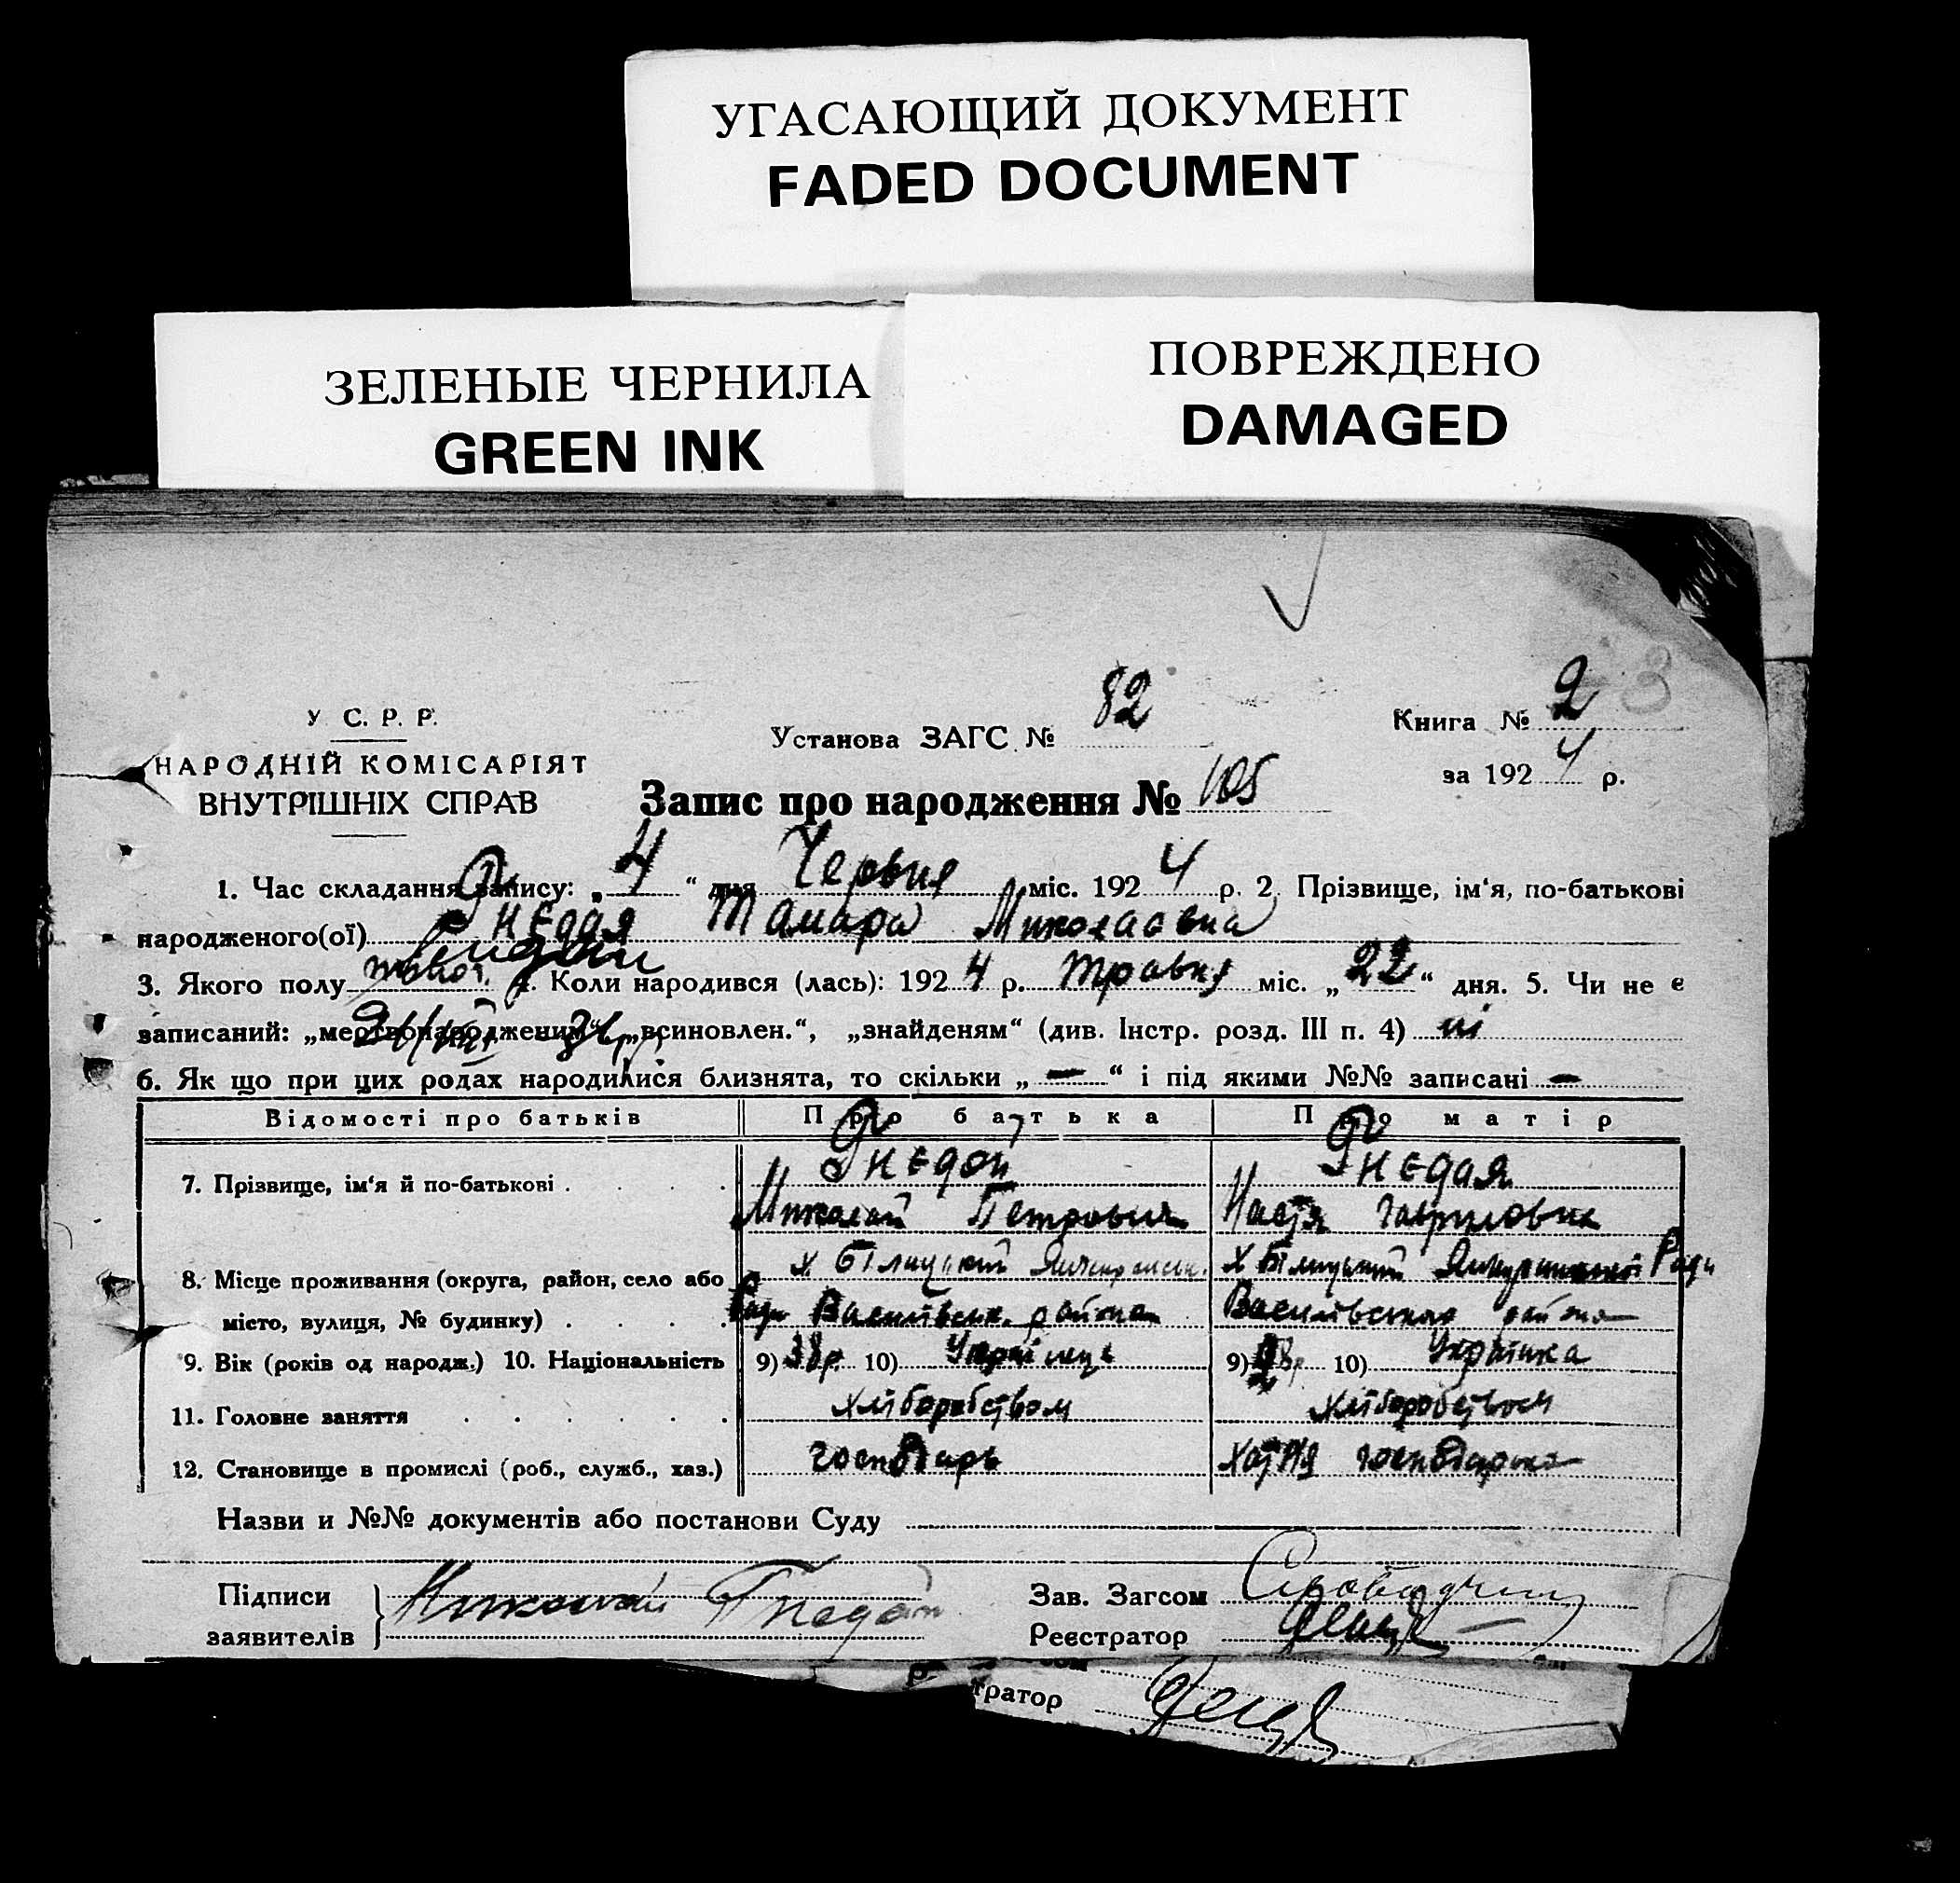 УГАСАЮЩИЙ ДОКУМЕНТ
FADED DOCUMENT
ЗЕЛЕНЫЕ ЧЕРНИЛА
GREEN INK
ПОВРЕЖДЕНО
DAMAGED
3
У С. Р. Р.
НАРОДНІЙ КОМІСАРІЯТ
ВНУТРІШНІХ СПРАВ
Установа ЗАГС № 82
Книга № 2
за 1924 р.
Запис про народження № 105
1. Час складання запису: „4“ дня Червня міс. 1924 р. 2. Прізвище, ім‘я, по-батькові
народженого(ої) Гнєдая Тамара Миколаєвна
3. Якого полу жіноч. 4. Коли народився (лась): 1924 р. травня міс. „22“ дня. 5. Чи не є
записаний: „мертвонародженим“, „всиновлен.“, „знайденям“ (див. Інстр. розд. III п. 4) ні
6. Як що при цих родах народилися близнята, то скільки „—“ і під якими №№ записані —
Відомості про батьків Про батька Про матір
7. Прізвище, ім‘я й по-батькові Гнєдой Гнєдая
Миколай Петрович Настя Гавриловна
8. Місце проживання (округа, район, село або х. х.
місто, вулиця, № будинку) Ради Василівськ. района Василівського района
9. Вік (років од народж.) 10. Національність 9) 38 р. 10) Українець 9) 10) Українка
11. Головне заняття хліборобством хліборобством
12. Становище в промислі (роб., служб., хаз.) господарь хатня господарка
Назви и №№ документів або постанови Суду
Підписи
заявителів
Миколай Гнедой
Зав. Загсом
Реєстратор
тратор